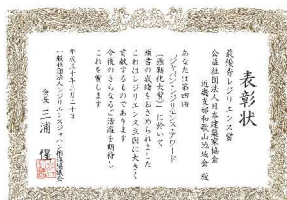 表彰状
最優秀レジリエンス賞
公益社団法人日本建築家協会
近畿支部和歌山地域会 殿
あなたは第四回
「ジャパン・レジリエンス・アワード
(強靭化大賞)」に於いて
頭書の成績をおさめられました
これはレジリエンス立国に大きく
貢献するものであります
今後のさらなるご活躍を期待し
これを賞します
平成三十年三月二十日
一般社団法人レジリエンスジャパン推進協議会
会長 三浦 惺